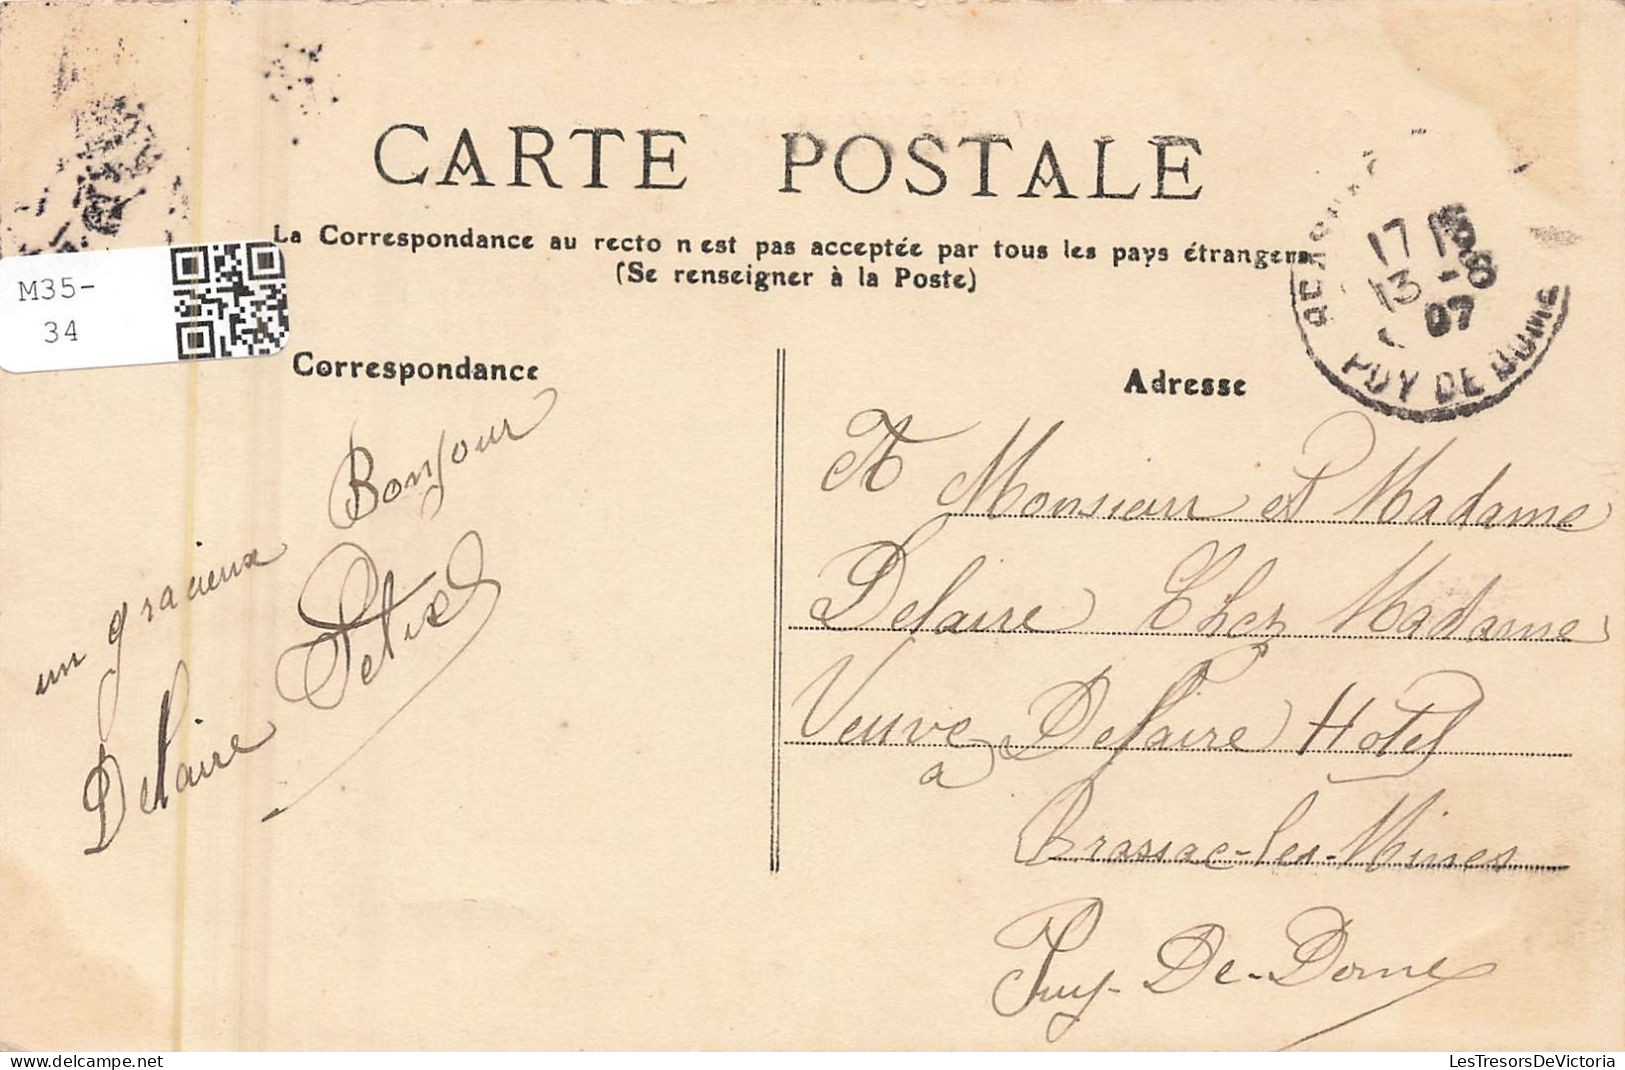 CARTE POSTALE
La Correspondance au recto n'est pas acceptée par tous les pays étrangers
(Se renseigner à la Poste)
M35-
34
Correspondance
Adresse
17 15
13 - 8
07
PUY DE DOME
un gracieux Bonjour
Delaire
A Monsieur et Madame
Delaire Chez Madame
Veuve Delaire Hotel
a
Brassac-les-Mines
Puy-De-Dome
LesTresorsDeVictoria
www.delcampe.net